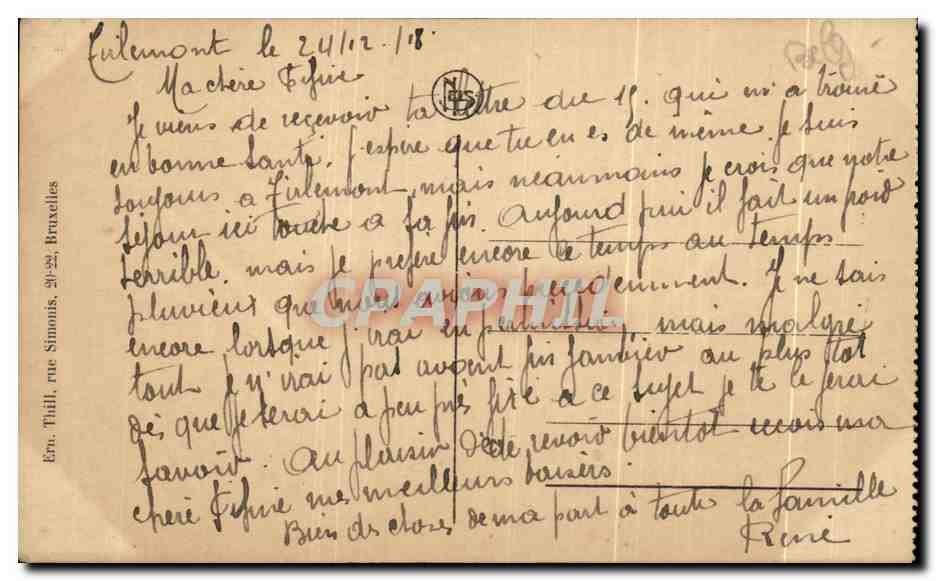 Tirlemont le 24/12-/18.
Belg
Ma chère Fifine
NELS
Je viens de reçevoir ta lettre du 15. qui m'a trouvé
en bonne santé. J'espère que tu en es de même. Je suis
toujours a Tirlemont, mais néanmoins je crois que notre
séjour ici touche a sa fin. Aujourd'hui il fait un froid
terrible. mais je préfère encore ce temps au temps
pluvieux que nous avions précédemment. Je ne sais
encore lorsque j'irai en permission, mais malgré
tout je n'irai pas avant fin janvier au plus tot
dès que je serai a peu près fixé a ce sujet je te le ferai
savoir. Au plaisir de te revoir bientot reçois ma
chère Fifine mes meilleurs baisers.
Bien des choses de ma part à toute la famille
René
Ern. Thill, rue Simonis, 20-22, Bruxelles
CPAPHIL